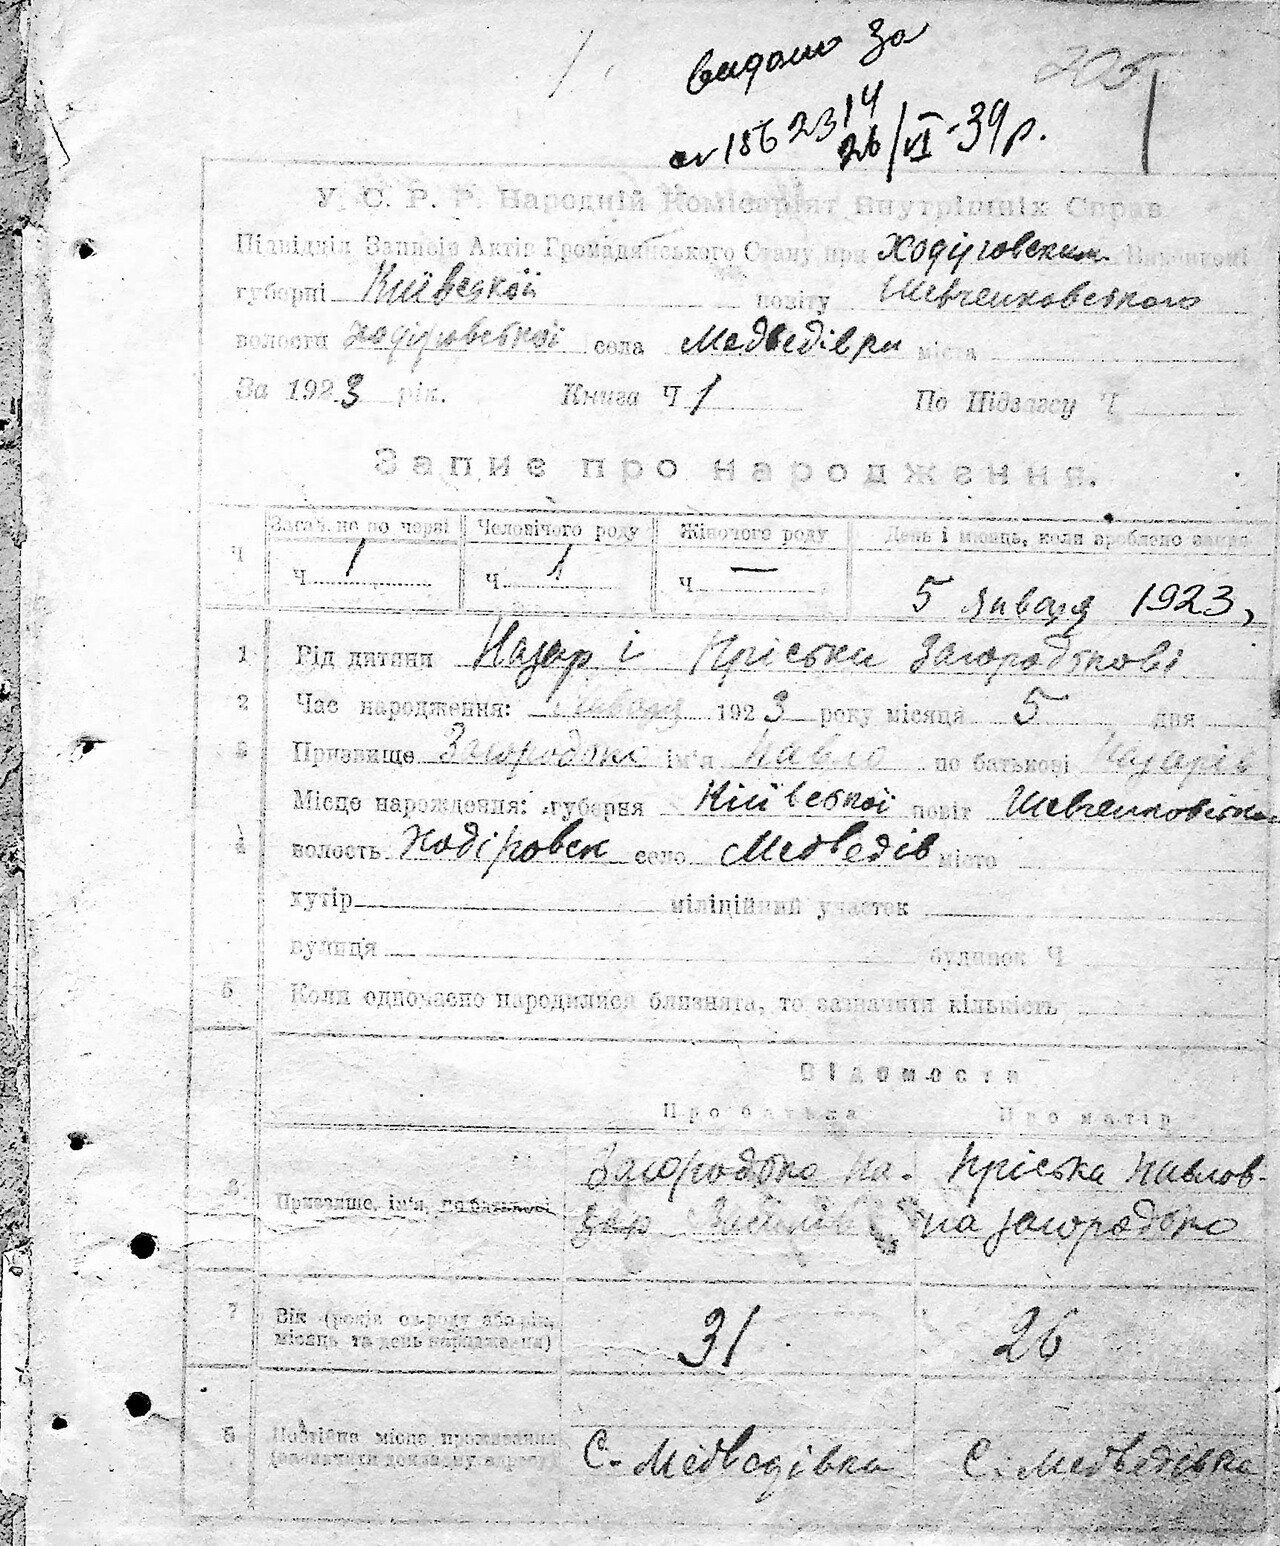 видано за
205
1862314
26/VI-39 р.
У. С. Р. Р. Народній Комісаріят Внутрішніх Справ
Підвідділ Записів Актів Громадянського Стану при Ходоровским Виконкомі
губерні Київецкой повіту Шевченковського
волости Ходоровской села Медведівки міста
За 1923 рік. Книга Ч 1 По Підзагсу Ч
Запис про народження.
Загаль. но по черзі Чоловічого роду Жіночого роду День і місяць, коли зроблено запис
Ч Ч 1 Ч 1 Ч — 5 Января 1923
1 Рід дитини Назар і Кріськи Загородькові
2 Час народження: Января 1923 року місяця 5 дня
3 Призвище Загородько ім'я Павло по батькові Назарів
Місце народження: губерня Київської повіт Шевченковська
4 волость Ходіровск село Медведів місто
хутір міліційний участок
вулиця будинок Ч
5 Коли одночасно народилися близнята, то зазначити кількість
Відомости
Про батька Про матір
6 Призвище, ім'я, по батькові Загородько На- Кріська Павлов-
зар Василів на Загородько
7 Вік (років від роду або рік, місяць та день народження) 31 26
8 Постійне місце проживання (зазначити докладну адресу) С. Медведівка С. Медведівка